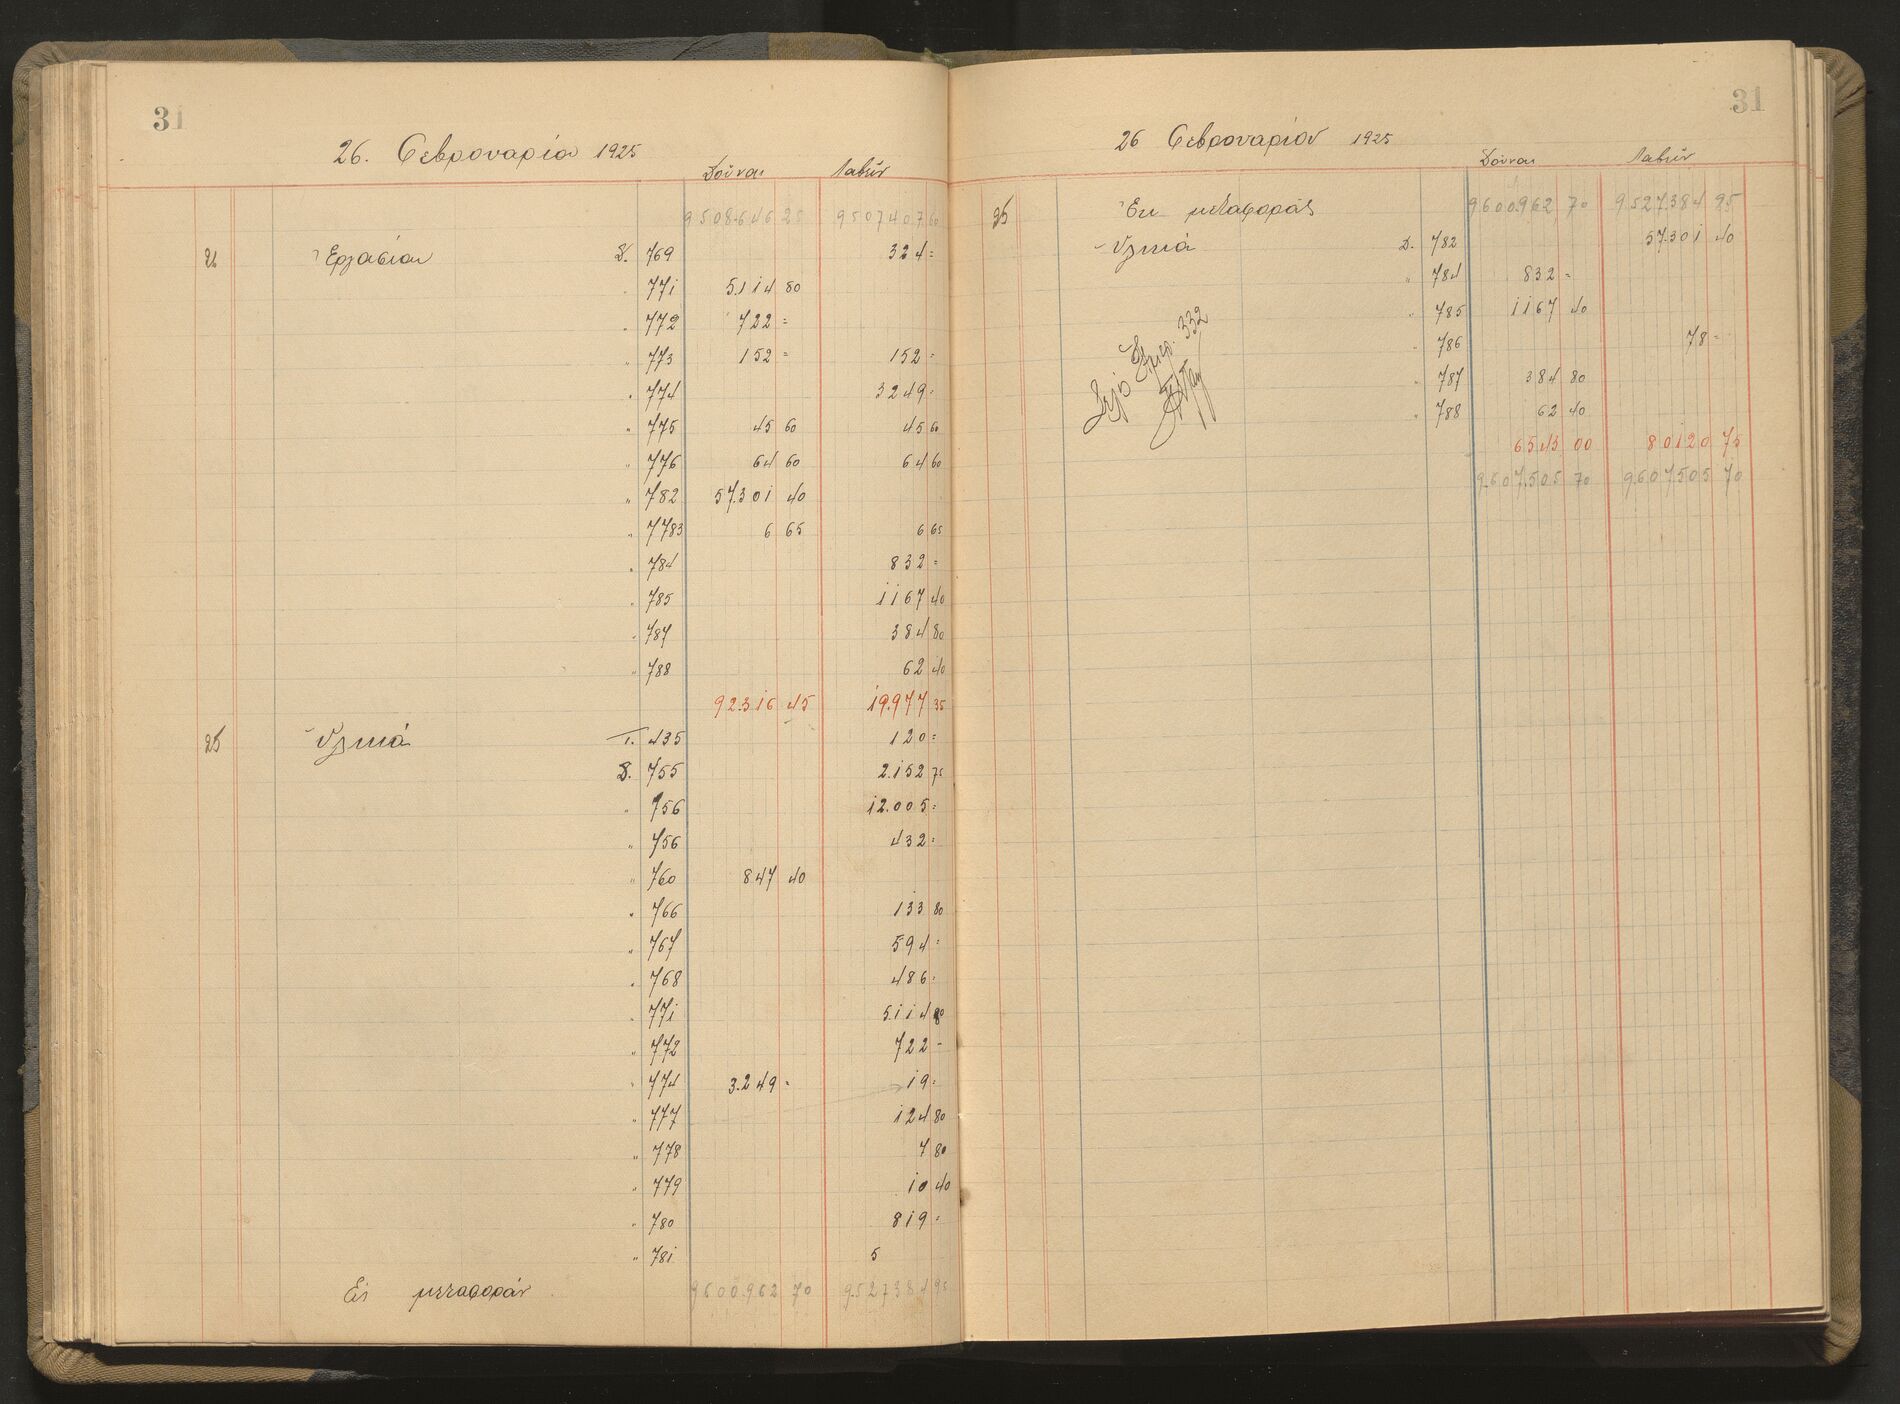 31
26. Φεβρουαρίου 1925
Δοῦναι Λαβεῖν
9508.646 25 9507407 60
26 Ἐργασίαι Δ. 769 324 =
" 771 5.114 80
" 772 722 =
" 773 152 = 152 =
" 774 3249 =
" 775 45 60 45 60
" 776 64 60 64 60
" 782 57.301 40
" 7783 6 65 6 65
" 784 832 =
" 785 1167 40
" 787 384 80
" 788 62 40
92.316 45 19.977 35
25 Ὑλικά Τ. 435 120 =
Δ. 755 2.152 75
" 756 12.005 =
" 756 432 =
" 760 847 40
" 766 133 80
" 767 594 =
" 768 486 =
" 771 5.114 80
" 772 722 -
" 774 3.249 = 19 =
" 777 124 80
" 778 7 80
" 779 10 40
" 780 819 =
" 781 5
Εἰς μεταφοράν 9600.962 70 9.527384 95
31
26 Φεβρουαρίου 1925
Δοῦναι Λαβεῖν
25 Ἐκ μεταφορᾶς 9.600.962 70 9.527.384 95
Ὑλικά Δ. 782 57.301 40
" 784 832 =
" 785 1167 40
" 786 78 =
" 787 384 80
" 788 62 40
6543 00 80120 75
9.607.505 70 9.607505 70
332